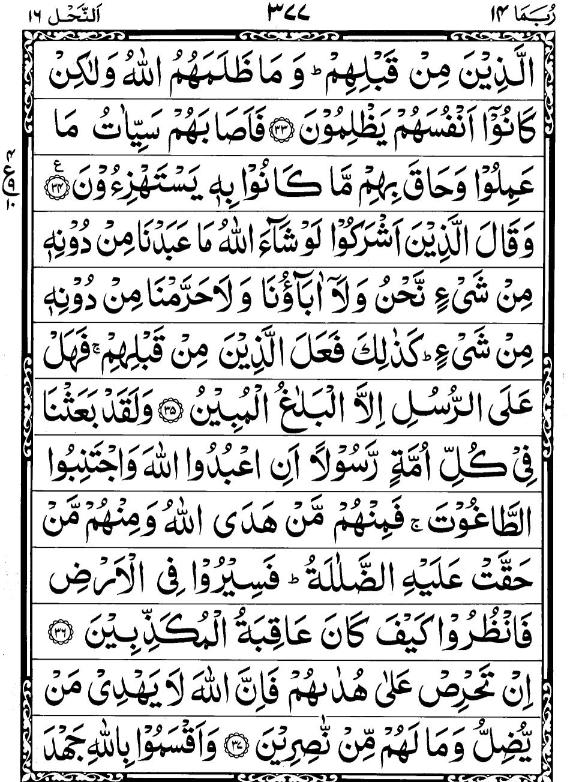 رُبَمَا ۱۴ ۳۷۷ اَلنَّحْل ۱۶
الَّذِيْنَ مِنْ قَبْلِهِمْ ؕ وَ مَا ظَلَمَهُمُ اللّٰهُ وَلٰكِنْ
كَانُوْۤا اَنْفُسَهُمْ يَظْلِمُوْنَ ۝۳۳ فَاَصَابَهُمْ سَيِّاٰتُ مَا
عَمِلُوْا وَحَاقَ بِهِمْ مَّا كَانُوْا بِهٖ يَسْتَهْزِءُوْنَ ۝۳۴ ع
وَقَالَ الَّذِيْنَ اَشْرَكُوْا لَوْ شَآءَ اللّٰهُ مَا عَبَدْنَا مِنْ دُوْنِهٖ
مِنْ شَىْءٍ نَّحْنُ وَلَاۤ اٰبَآؤُنَا وَلَا حَرَّمْنَا مِنْ دُوْنِهٖ
مِنْ شَىْءٍ ؕ كَذٰلِكَ فَعَلَ الَّذِيْنَ مِنْ قَبْلِهِمْ ۚ فَهَلْ
عَلَى الرُّسُلِ اِلَّا الْبَلٰغُ الْمُبِيْنُ ۝۳۵ وَلَقَدْ بَعَثْنَا
فِىْ كُلِّ اُمَّةٍ رَّسُوْلًا اَنِ اعْبُدُوا اللّٰهَ وَاجْتَنِبُوا
الطَّاغُوْتَ ۚ فَمِنْهُمْ مَّنْ هَدَى اللّٰهُ وَمِنْهُمْ مَّنْ
حَقَّتْ عَلَيْهِ الضَّلٰلَةُ ؕ فَسِيْرُوْا فِى الْاَرْضِ
فَانْظُرُوْا كَيْفَ كَانَ عَاقِبَةُ الْمُكَذِّبِيْنَ ۝۳۶
اِنْ تَحْرِصْ عَلٰى هُدٰىهُمْ فَاِنَّ اللّٰهَ لَا يَهْدِىْ مَنْ
يُّضِلُّ وَمَا لَهُمْ مِّنْ نّٰصِرِيْنَ ۝۳۷ وَاَقْسَمُوْا بِاللّٰهِ جَهْدَ
۴
ع
۹
۱۰